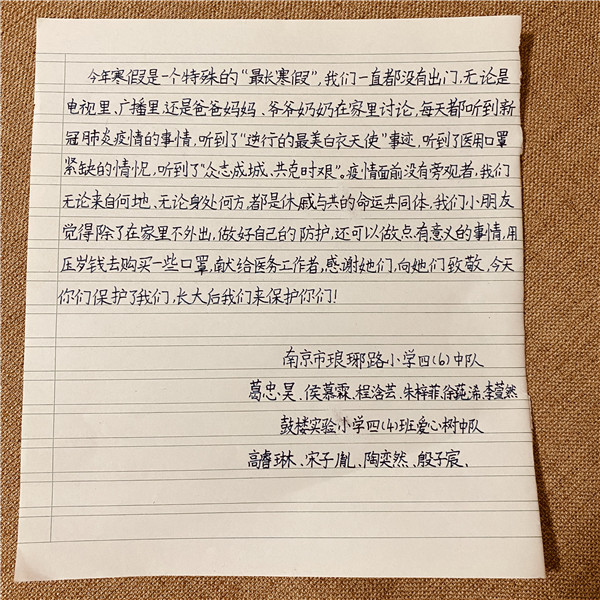 今年寒假是一个特殊的“最长寒假”,我们一直都没有出门,无论是
电视里、广播里还是爸爸妈妈、爷爷奶奶在家里讨论,每天都听到新
冠肺炎疫情的事情,听到了“逆行的最美白衣天使”事迹,听到了医用口罩
紧缺的情况,听到了“众志成城、共克时艰”。疫情面前没有旁观者,我们
无论来自何地、无论身处何方,都是休戚与共的命运共同体,我们小朋友
觉得除了在家里不外出,做好自己的防护,还可以做点有意义的事情,用
压岁钱去购买一些口罩,献给医务工作者,感谢她们,向她们致敬,今天
你们保护了我们,长大后我们来保护你们!
南京市琅琊路小学四(6)中队
葛忠昊、侯慕霖、程浛芸、朱梓菲、徐菀浠、李萱然
鼓楼实验小学四(4)班爱心树中队
高睿琳、宋子胤、陶奕然、殷子宸、